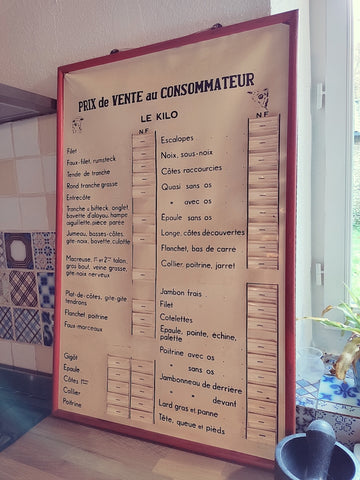 PRIX de VENTE au CONSOMMATEUR
LE KILO
N F
Filet
Faux-filet, rumsteck
Tende de tranche
Rond tranche grasse
Entrecôte
Tranche à bifteck, onglet,
bavette d'aloyau, hampe
aiguillette, pièce parée
Jumeau, basses-côtes,
gîte-noix, bavette, culotte
Macreuse, 1er et 2ème talon,
gros bout, veine grasse,
gîte noix nerveux
Plat-de-côtes, gîte-gîte
tendrons
Flanchet, poitrine
Faux-morceaux
Gigôt
Epaule
Côtes
Collier
Poitrine
N F
Escalopes
Noix, sous-noix
Côtes raccourcies
Quasi sans os
" avec os
Epaule sans os
Longe, côtes découvertes
Flanchet, bas de carré
Collier, poitrine, jarret
Jambon frais
Filet
Cotelettes
Epaule, pointe, échine,
palette
Poitrine avec os
" sans os
Jambonneau de derrière
" " devant
Lard gras et panne
Tête, queue et pieds